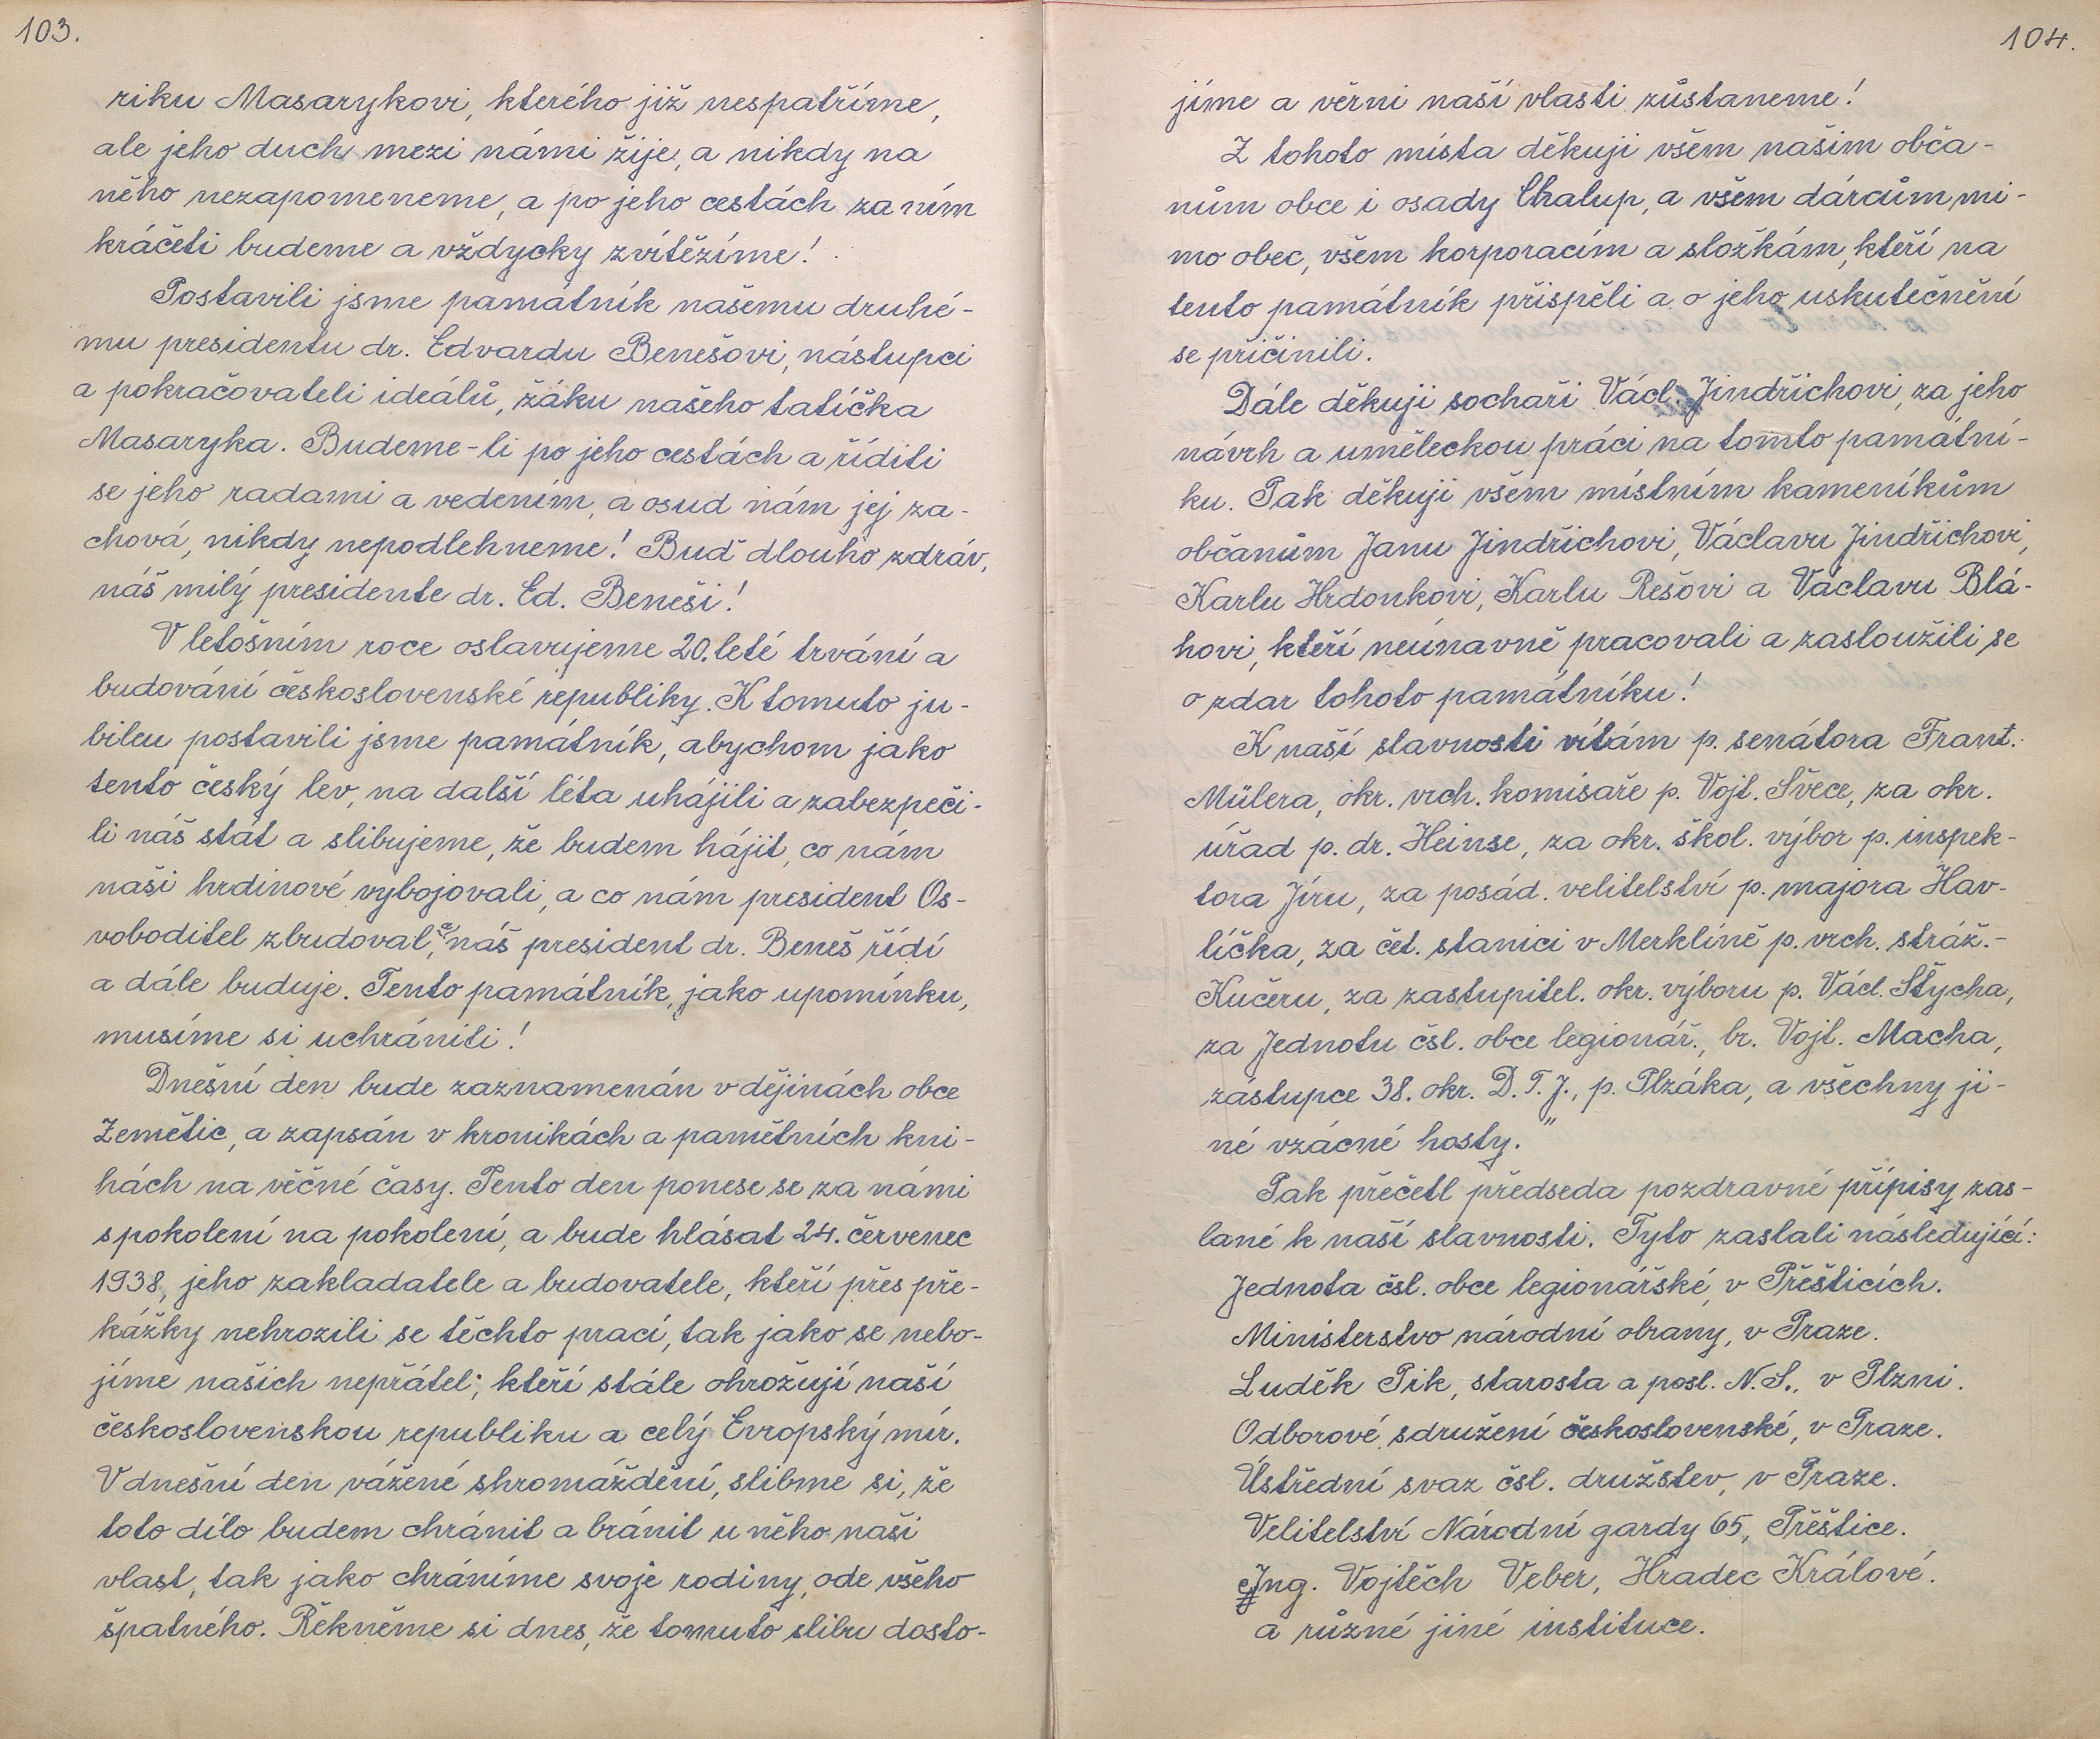 103.
riku Masarykovi, kterého již nespatříme,
ale jeho duch mezi námi žije, a nikdy na
něho nezapomeneme, a po jeho cestách za ním
kráčeti budeme a vždycky zvítězíme!
Postavili jsme památník našemu druhé-
mu presidentu dr. Edvardu Benešovi, nástupci
a pokračovateli ideálů, žáku našeho tatíčka
Masaryka. Budeme-li po jeho cestách a říditi
se jeho radami a vedením, a osud nám jej za-
chová, nikdy nepodlehneme! Buď dlouho zdráv,
náš milý presidente dr. Ed. Beneši!
V letošním roce oslavujeme 20.leté trvání a
budování československé republiky. K tomuto ju-
bileu postavili jsme památník, abychom jako
tento český lev, na další léta uhájili a zabezpeči-
li náš stát a slibujeme, že budem hájit, co nám
naši hrdinové vybojovali, a co nám president Os-
voboditel zbudoval, a náš president dr. Beneš řídí
a dále buduje. Tento památník, jako upomínku,
musíme si uchrániti!
Dnešní den bude zaznamenán v dějinách obce
Zemětic, a zapsán v kronikách a pamětních kni-
hách na věčné časy. Tento den ponese se za námi
s pokolení na pokolení, a bude hlásat 24. červenec
1938, jeho zakladatele a budovatele, kteří přes pře-
kážky nehrozili se těchto prací, tak jako se nebo-
jíme našich nepřátel, kteří stále ohrožují naší
československou republiku a celý Evropský mír.
V dnešní den vážené shromáždění, slibme si, že
toto dílo budem chránit a bránit u něho naši
vlast, tak jako chráníme svoje rodiny, ode všeho
špatného. Řekněme si dnes, že tomuto slibu dosto-
104.
jíme a věrni naší vlasti zůstaneme!
Z tohoto místa děkuji všem našim obča-
nům obce i osady Chalup, a všem dárcům mi-
mo obec, všem korporacím a složkám, kteří na
tento památník přispěli a o jeho uskutečnění
se přičinili.
Dále děkuji sochaři Václ. Jindřichovi, za jeho
návrh a uměleckou práci na tomto památní-
ku. Pak děkuji všem místním kameníkům
občanům Janu Jindřichovi, Václavu Jindřichovi,
Karlu Hrdonkovi, Karlu Rešovi a Václavu Blá-
hovi, kteří neúnavně pracovali a zasloužili se
o zdar tohoto památníku!
K naší slavnosti vítám p. senátora Frant.
Mülera, okr. vrch. komisaře p. Vojt. Švece, za okr.
úřad p. dr. Heinse, za okr. škol. výbor p. inspek-
tora Jíru, za posád. velitelství p. majora Hav-
líčka, za čet. stanici v Merklíně p. vrch. stráž.-
Kučeru, za zastupitel. okr. výboru p. Václ. Štycha,
za Jednotu čsl. obce legionář., br. Vojt. Macha,
zástupce 38. okr. D. T. J., p. Plzáka, a všechny ji-
né vzácné hosty."
Pak přečetl předseda pozdravné přípisy zas-
lané k naší slavnosti. Tyto zaslali následující:
Jednota čsl. obce legionářské, v Přešticích.
Ministerstvo národní obrany, v Praze.
Luděk Pik, starosta a posl. N. S., v Plzni.
Odborové sdružení československé, v Praze.
Ústřední svaz čsl. družstev, v Praze.
Velitelství Národní gardy 65, Přeštice.
Ing. Vojtěch Veber, Hradec Králové.
a různé jiné instituce.